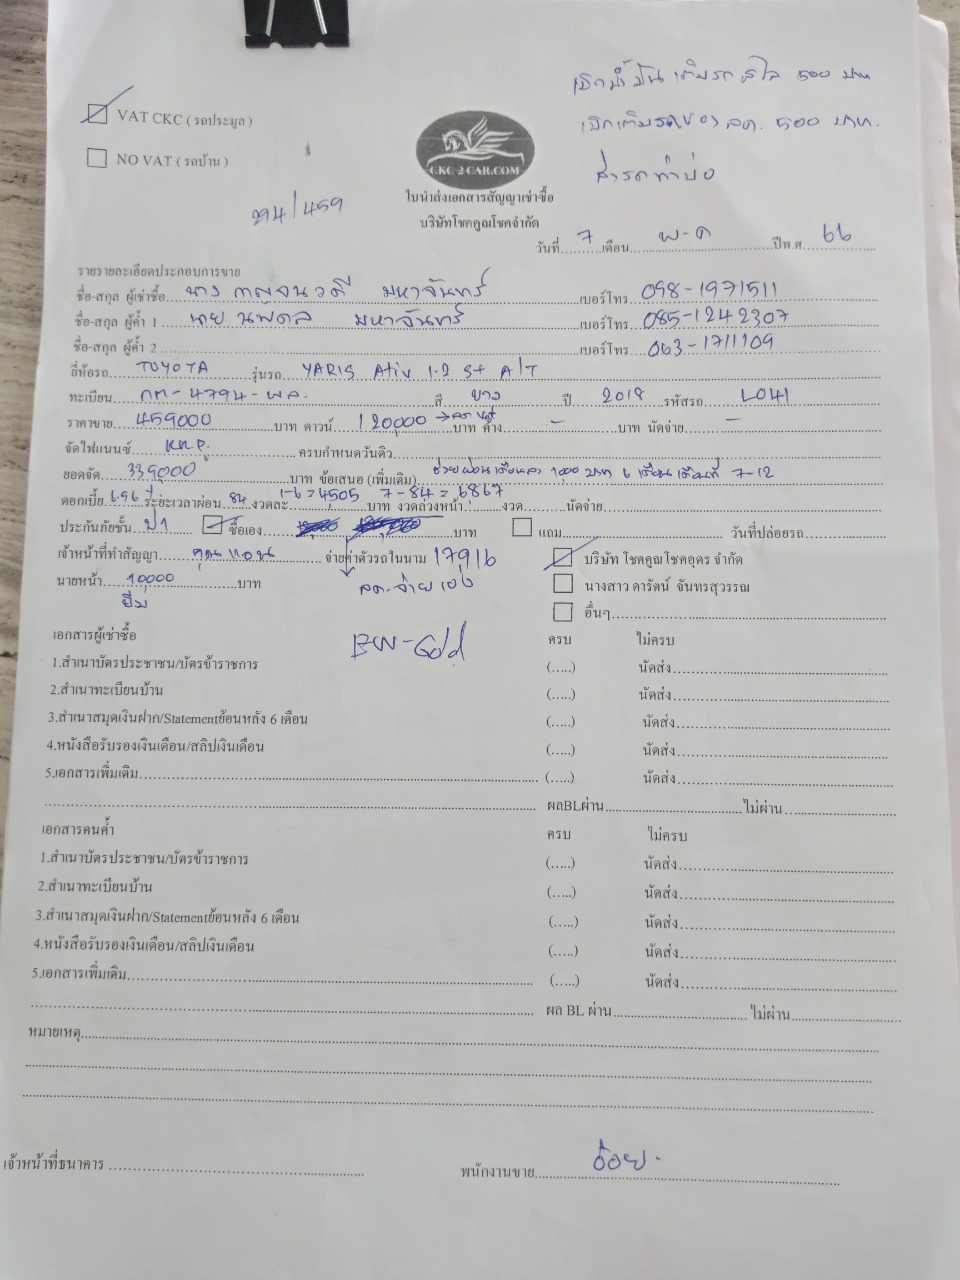 เบิกน้ำมัน เติมรถ สไล 500 บาท
VAT CKC ( รถประมูล )
เบิกเติมรถของ ลค. 500 บาท.
NO VAT ( รถบ้าน )
CKC-2-CAR.COM
ใบนำส่งเอกสารสัญญาเช่าซื้อ
294/459
บริษัทโชคคูณโชคจำกัด
วันที่ 7 เดือน พ-ค ปีพ.ศ. 66
รายรายละเอียดประกอบการขาย
ชื่อ-สกุล ผู้เช่าซื้อ นาง กาญจนวดี มหาจันทร์ เบอร์โทร 098-1971511
ชื่อ-สกุล ผู้ค้ำ 1 นาย นพดล มหาจันทร์ เบอร์โทร 085-1242307
ชื่อ-สกุล ผู้ค้ำ 2 เบอร์โทร 063-1711109
ยี่ห้อรถ TOYOTA รุ่นรถ YARIS Ativ 1.2 S+ A/T
ทะเบียน กต-4794-พล. สี ขาว ปี 2018 รหัสรถ L041
ราคาขาย 459000 บาท ดาวน์ 120,000 บาท ค้าง - บาท นัดจ่าย -
จัดไฟแนนซ์ KKP. ครบกำหนดวันดิว
ยอดจัด 339,000 บาท ข้อเสนอ (เพิ่มเติม) ช่วยผ่อนเดือนละ 1000 บาท 6 เดือน เดือนที่ 7-12
ดอกเบี้ย 6.96 ระยะเวลาผ่อน 84 งวดละ 1-6 = 4505 7-84 = 6867 บาท งวดล่วงหน้า งวด นัดจ่าย
ประกันภัยชั้น ป1 ซื้อเอง บาท แถม วันที่ปล่อยรถ
เจ้าหน้าที่ทำสัญญา คุณแอน จ่ายค่าตัวรถในนาม 17916 บริษัท โชคคูณโชคอุดร จำกัด
นายหน้า 10,000 บาท ลค.จ่ายเอง นางสาว ดารัตน์ จันทรสุวรรณ
ยิ้ม อื่นๆ
เอกสารผู้เช่าซื้อ EW-Gold ครบ ไม่ครบ
1.สำเนาบัตรประชาชน/บัตรข้าราชการ (.....) นัดส่ง
2.สำเนาทะเบียนบ้าน (.....) นัดส่ง
3.สำเนาสมุดเงินฝาก/Statementย้อนหลัง 6 เดือน (.....) นัดส่ง
4.หนังสือรับรองเงินเดือน/สลิปเงินเดือน (.....) นัดส่ง
5.เอกสารเพิ่มเติม (.....) นัดส่ง
ผลBLผ่าน ไม่ผ่าน
เอกสารคนค้ำ ครบ ไม่ครบ
1.สำเนาบัตรประชาชน/บัตรข้าราชการ (.....) นัดส่ง
2.สำเนาทะเบียนบ้าน (.....) นัดส่ง
3.สำเนาสมุดเงินฝาก/Statementย้อนหลัง 6 เดือน (.....) นัดส่ง
4.หนังสือรับรองเงินเดือน/สลิปเงินเดือน (.....) นัดส่ง
5.เอกสารเพิ่มเติม (.....) นัดส่ง
ผล BL ผ่าน ไม่ผ่าน
หมายเหตุ
เจ้าหน้าที่ธนาคาร พนักงานขาย อ้อย.